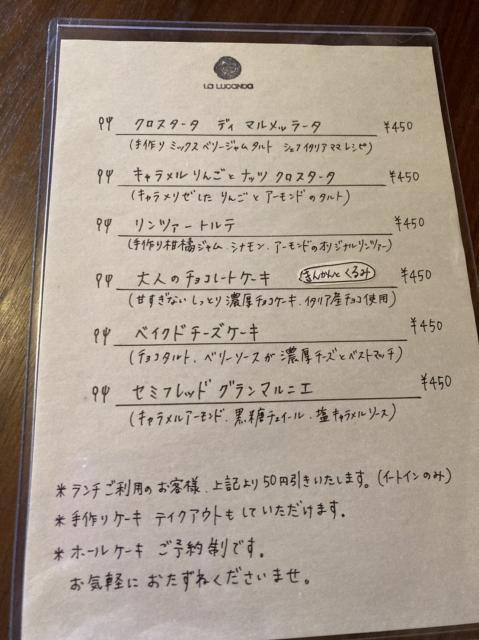 LA LUCANDA
クロスタータ ディ マルメッラータ ¥450
(手作り ミックスベリージャムタルト シェフイタリアママレシピ)
キャラメルりんごとナッツ クロスタータ ¥450
(キャラメリゼした りんごとアーモンドのタルト)
リンツァートルテ ¥450
(手作り柑橘ジャム、シナモン、アーモンドのオリジナルリンツァー)
大人のチョコレートケーキ きんかんとくるみ ¥450
(甘すぎない しっとり 濃厚チョコケーキ、イタリア産チョコ使用)
ベイクドチーズケーキ ¥450
(チョコタルト、ベリーソースが濃厚チーズとベストマッチ)
セミフレッド グランマルニエ ¥450
(キャラメルアーモンド、黒糖チュイール、塩キャラメルソース)
*ランチご利用のお客様、上記より50円引きいたします。(イートインのみ)
*手作りケーキ テイクアウトもしていただけます。
*ホールケーキ ご予約制です。
お気軽におたずねくださいませ。